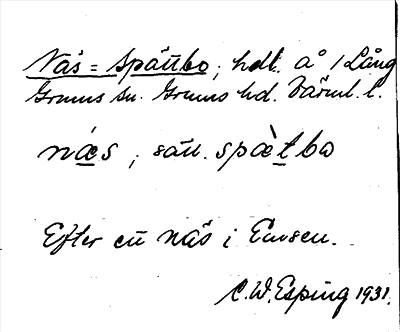 Näs = Spättbo; hdl. å /Lång
Grums sn. Grums hd. Värml. l.
næs ; säll. spæ̀tbo
Efter ett näs i Emsen.
C.W. Esping 1931.